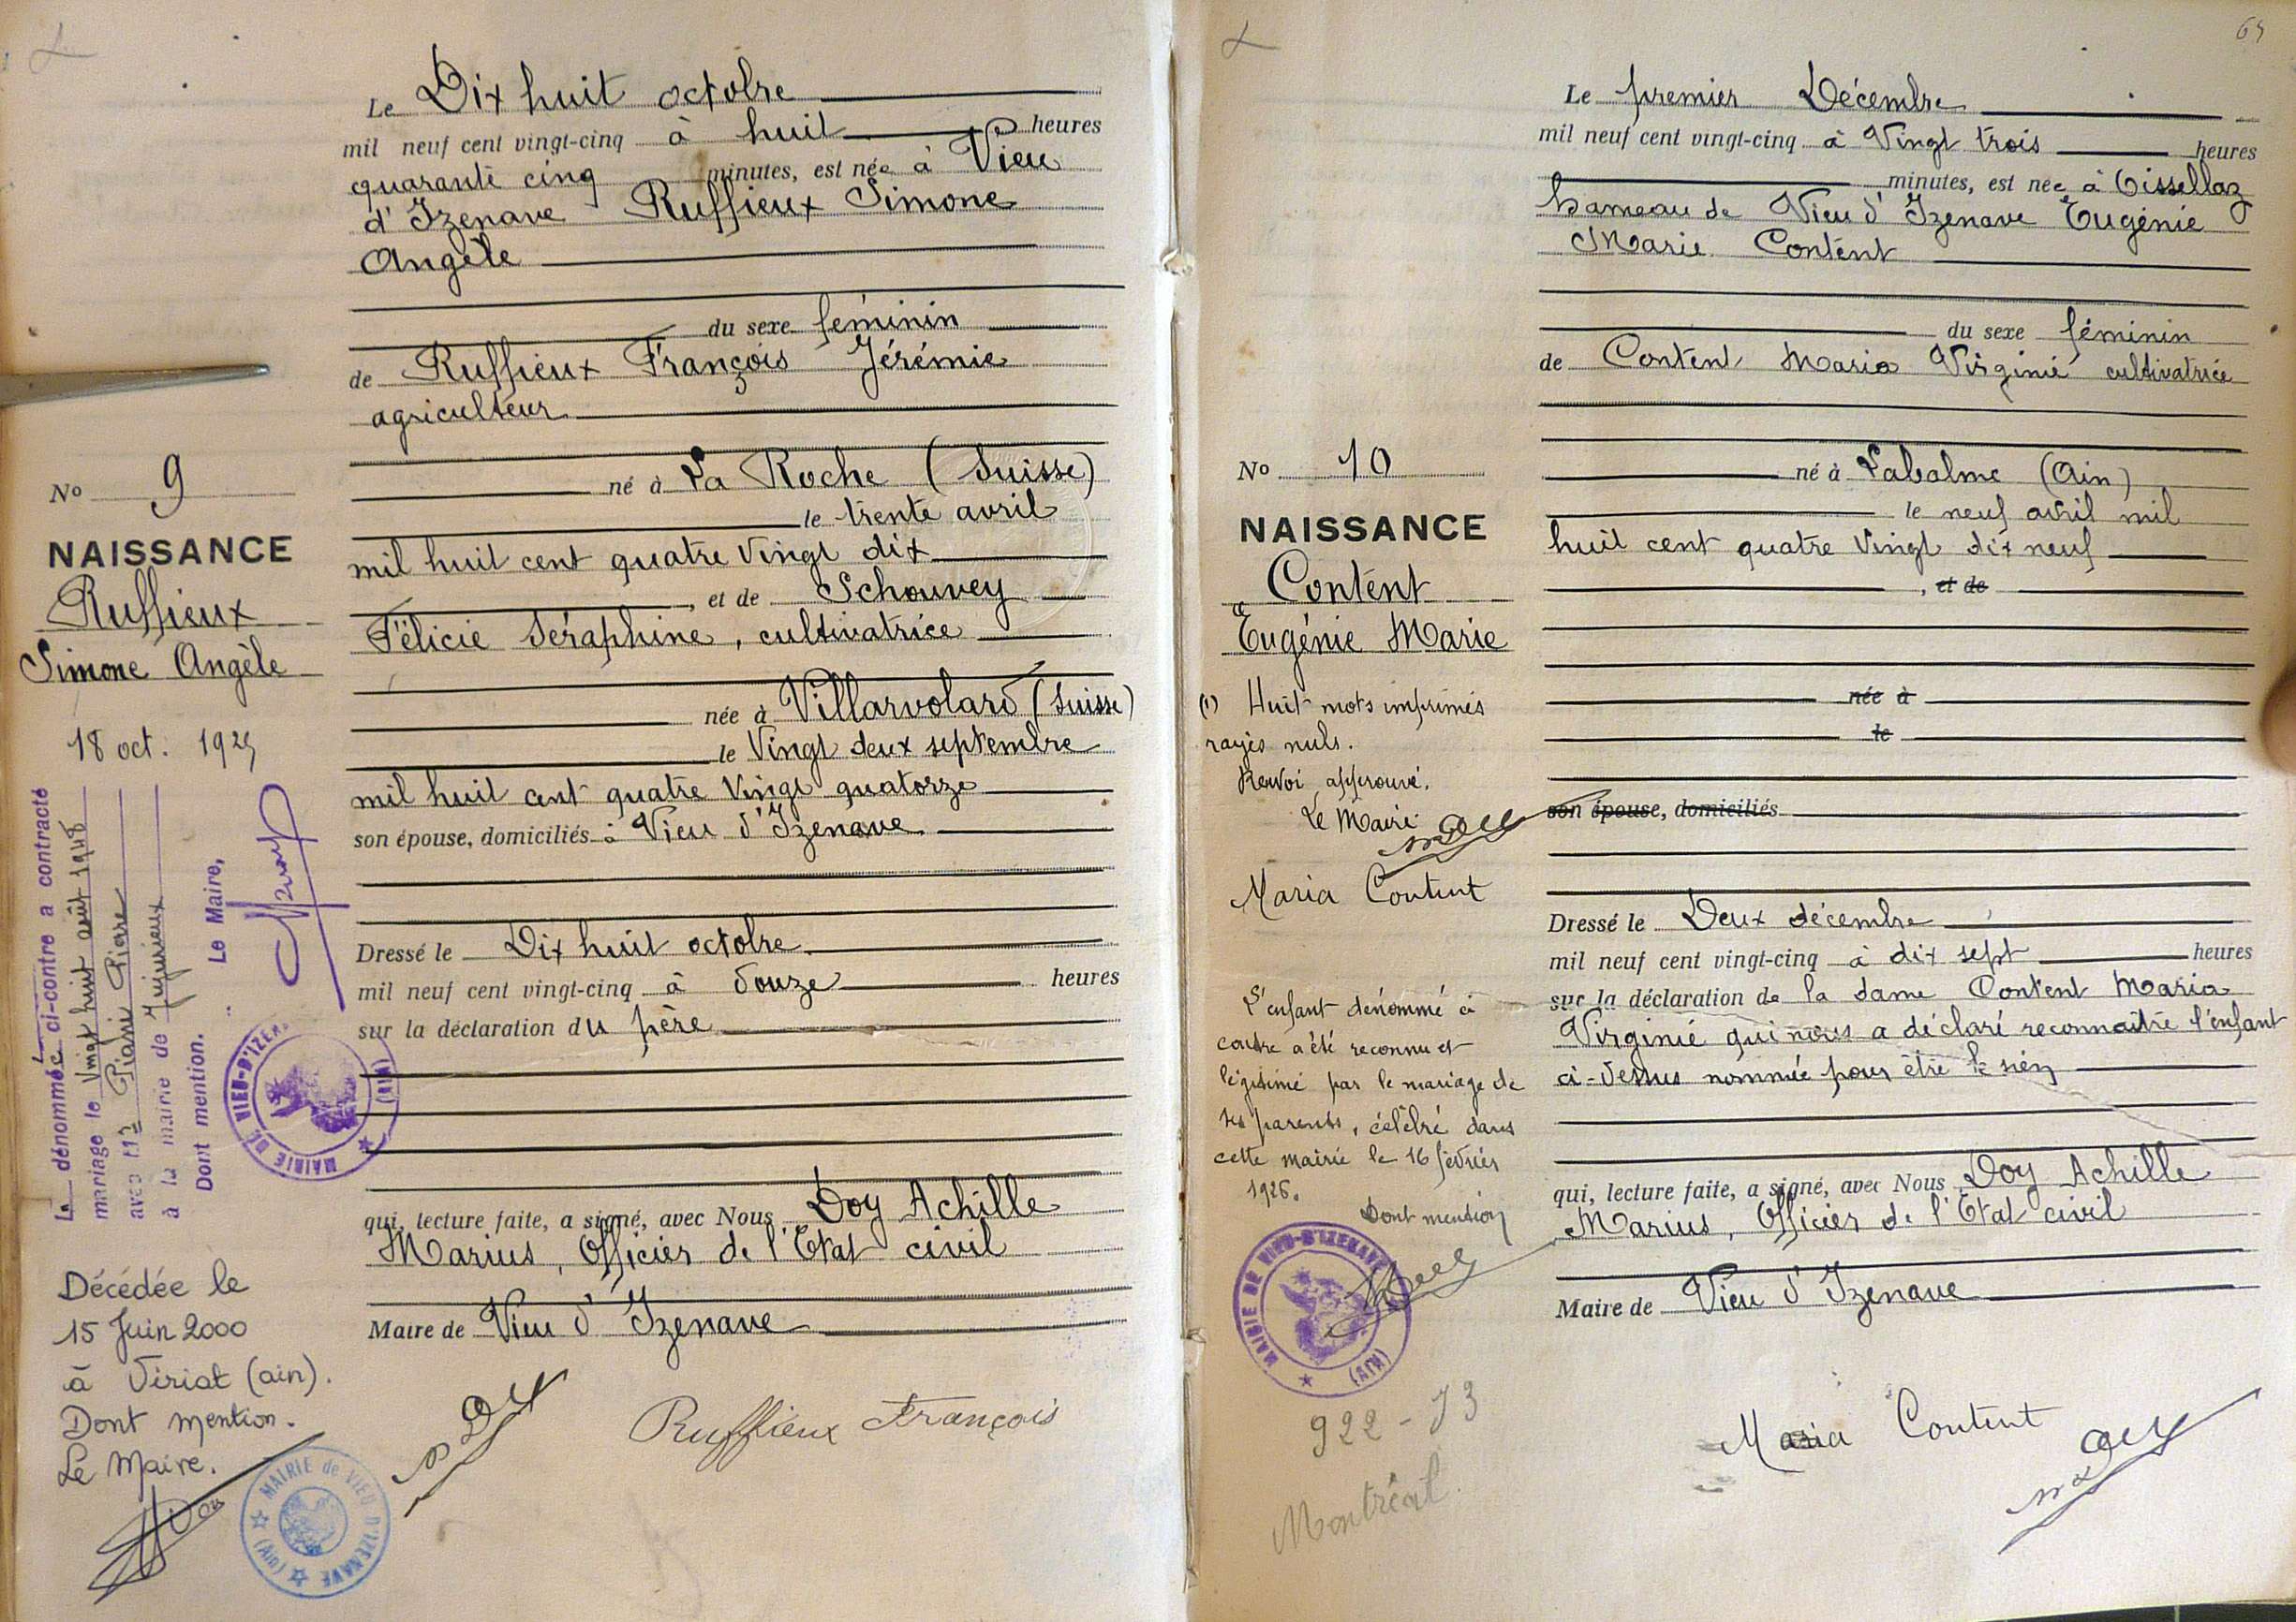 Le Dix huit octobre
mil neuf cent vingt-cinq à huit heures
quarante cinq minutes, est née à Vieu
d'Izenave Ruffieux Simone
Angèle
du sexe féminin
de Ruffieux François Jérémie
agriculteur
né à La Roche (Suisse)
le trente avril
mil huit cent quatre vingt dix
, et de Schouvey
Félicie Séraphine, cultivatrice
née à Villarvolard (Suisse)
le Vingt deux septembre
mil huit cent quatre vingt quatorze
son épouse, domiciliés à Vieu d'Izenave
Dressé le Dix huit octobre
mil neuf cent vingt-cinq à douze heures
sur la déclaration du père
qui, lecture faite, a signé, avec Nous Doy Achille
Marius, Officier de l'Etat civil
Maire de Vieu d'Izenave
Ruffieux François
No 9
NAISSANCE
Ruffieux
Simone Angèle
18 oct. 1925
La dénommée ci-contre a contracté
mariage le Vingt huit août 1948
avec Mr Piani Pierre
à la mairie de Jujurieux
Dont mention. Le Maire,
MAIRIE DE VIEU-D'IZENAVE (AIN)
Décédée le
15 Juin 2000
à Viriat (ain).
Dont mention.
Le Maire.
MAIRIE de VIEU D'IZENAVE (Ain)
Le premier Décembre
mil neuf cent vingt-cinq à Vingt trois heures
minutes, est née à
hameau de Vieu d'Izenave Eugénie
Marie Content
du sexe féminin
de Content Maria Virginie cultivatrice
né à Labalme (Ain)
le neuf avril mil
huit cent quatre vingt dix neuf
, et de
née à
le
son épouse, domiciliés
Dressé le Deux décembre
mil neuf cent vingt-cinq à dix sept heures
sur la déclaration de la dame Content Maria
Virginie qui nous a déclaré reconnaître l'enfant
ci-dessus nommée pour être le sien
qui, lecture faite, a signé, avec Nous Doy Achille
Marius, Officier de l'Etat civil
Maire de Vieu d'Izenave
Maria Content
No 10
NAISSANCE
Content
Eugénie Marie
(1) Huit mots imprimés
rayés nuls.
Renvoi approuvé.
Le Maire
Maria Content
L'enfant dénommé ci
contre a été reconnu et
légitimé par le mariage de
ses parents, célébré dans
cette mairie le 16 février
1926.
Dont mention
MAIRIE DE VIEU-D'IZENAVE (AIN)
922 - 73
Montréal.